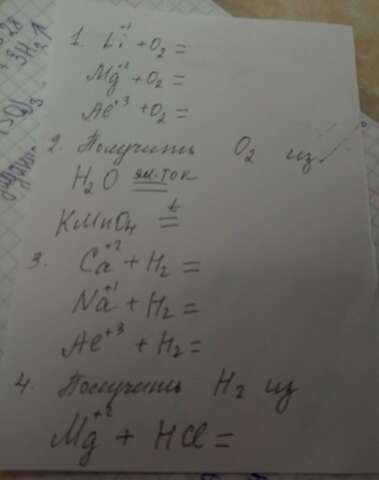 1. Li⁺¹ + O₂ =
Mg⁺² + O₂ =
Al⁺³ + O₂ =
2. Получить O₂ из
H₂O эл.ток =
KMnO₄ t =
3. Ca⁺² + H₂ =
Na⁺¹ + H₂ =
Al⁺³ + H₂ =
4. Получить H₂ из
Mg⁺² + HCl =